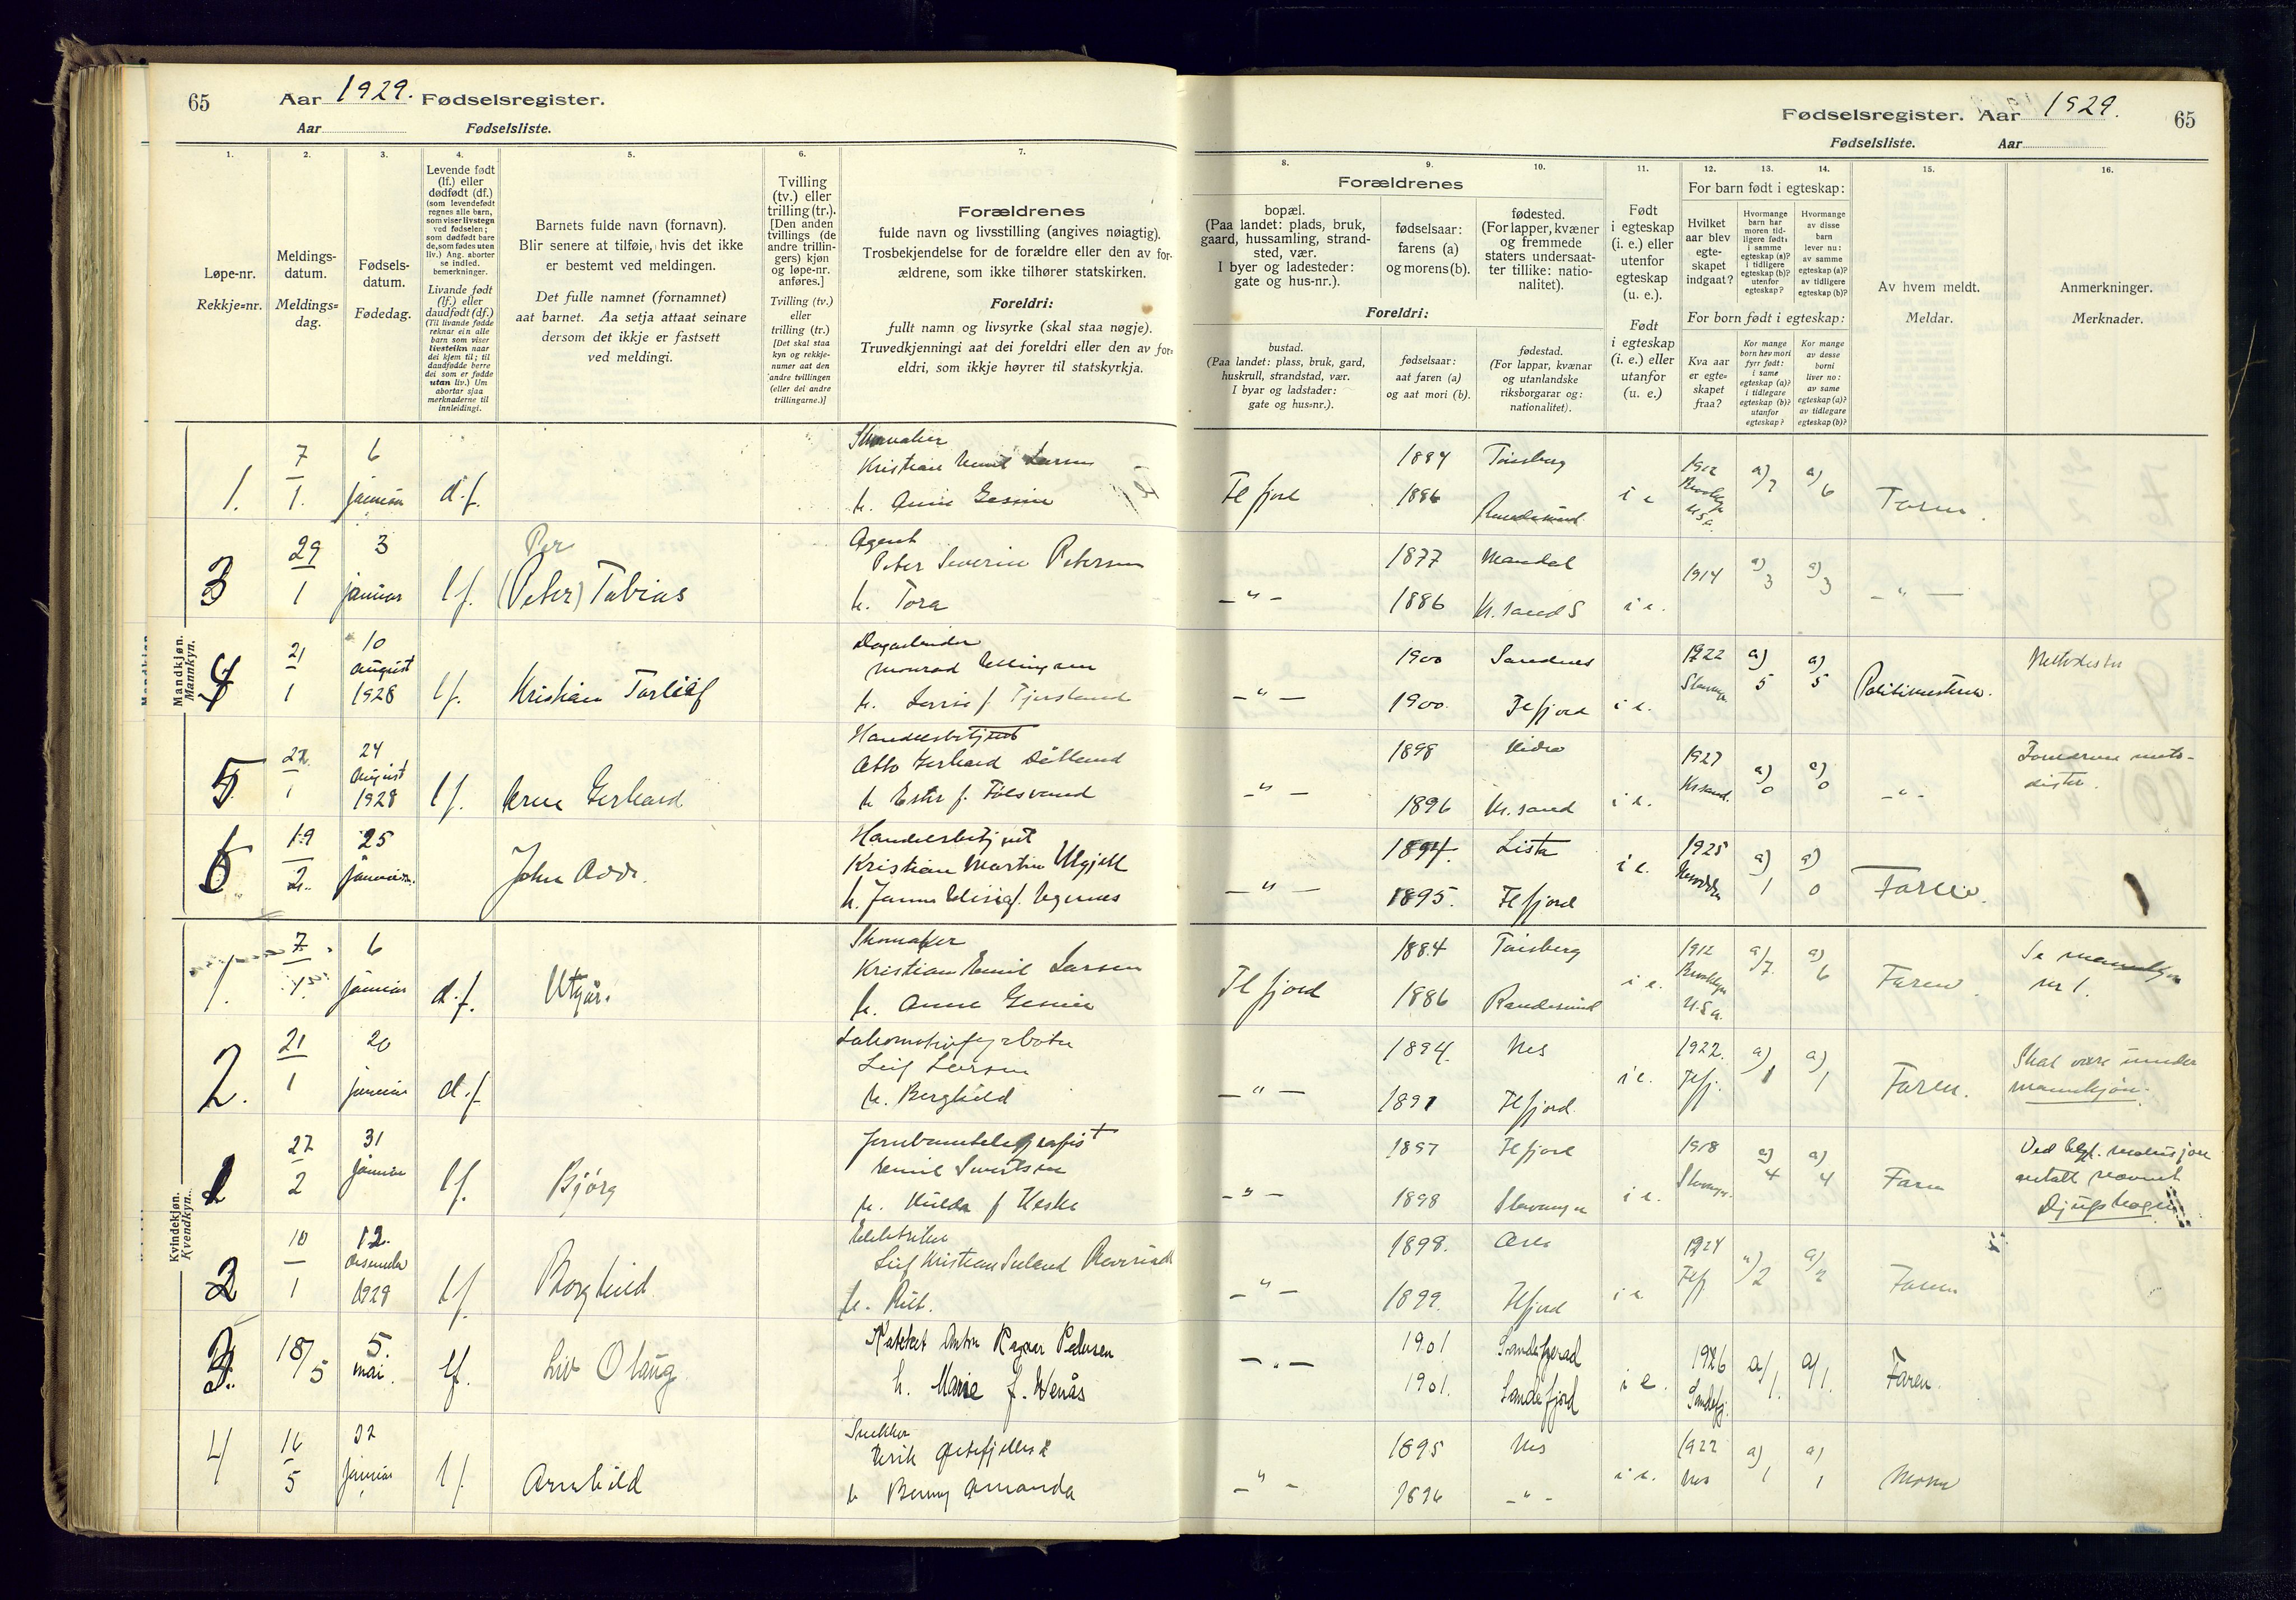 65
Aar 1929. Fødselsregister.
Aar Fødselsliste.
1.
Løpe-nr.
Rekkje=nr.
2.
Meldings-
datum.
Meldings=
dag.
3.
Fødsels-
datum.
Fødedag.
4.
Levende født
(lf.) eller
dødfødt (df.)
(som levendefødt
regnes alle barn,
som viser livstegn
ved fødselen;
som dødfødt bare
de, som fødes uten
liv.) Ang. aborter
se indled.
bemerkninger.
Livande født
(lf.) eller
daudfødt (df.)
(Til livande fødde
reknar ein alle
barn som viser
livsteikn naar
dei kjem til; til
daudfødde berre
dei som er fødde
utan liv.) Um
abortar sjaa
merknaderne til
innleidingi.
5.
Barnets fulde navn (fornavn).
Blir senere at tilføie, hvis det ikke
er bestemt ved meldingen.
Det fulle namnet (fornamnet)
aat barnet. Aa setja attaat seinare
dersom det ikkje er fastsett
ved meldingi.
6.
Tvilling
(tv.) eller
trilling (tr.).
[Den anden
tvillings (de
andre trillin-
gers) kjøn
og løpe-nr.
anføres.]
Tvilling (tv.)
eller
trilling (tr.)
[Det skal staa
kyn og rekkje-
numer aat den
andre tvillingen
(eller dei andre
trillingarne.)]
7.
Forældrenes
fulde navn og livsstilling (angives nøiagtig).
Trosbekjendelse for de forældre eller den av for-
ældrene, som ikke tilhører statskirken.
Foreldri:
fullt namn og livsyrke (skal staa nøgje).
Truvedkjenningi aat dei foreldri eller den av for-
eldri, som ikkje høyrer til statskyrkja.
Mandkjøn.
Mannkyn.
1.
7
1.
6
januar
d.f.
Skomaker
Kristian Emil Larsen
h. Anne Gesine
3
29
1
3
januar
lf.
Per
(Peter) Tobias
Agent
Peter Severin Petersen
h. Tora
4
21
1
10
august
1928
lf.
Kristian Torleif
5
24
August
1928
lf.
Arne Gerhard
Handelsbetjent
Otto Gerhard
h Ester f.
6
19
2.
25
januar.
John Odd.
Handelsbetjent
Kristian Martin
h.
Kvindekjøn.
Kvendkyn.
1.
7
6
januar
d.f.
Utgår.
Skomaker
Kristian Emil Larsen
h. Anne Gesine
2.
21
1
20
januar
d.f.
Lokomotivfyrbøter
Leif Larsen
h. Borghild
1
27
2
31
januar
lf.
Bjørg
Jernbanetelegrafist
Emil
h. Hulda f
2
10
1
12.
desember
1928
lf.
Borghild
Elektriker
Leif Kristian
h. Rut.
3.
18/5
5.
mai.
lf.
Liv Olaug
Anton Ragnar Pedersen
h. Marie f.
4
16
5
22
januar
lf.
Arnhild
Snekker
h Benny Amanda
Fødselsregister. Aar 1929.
65
Fødselsliste. Aar
8.
Forældrenes
bopæl.
(Paa landet: plads, bruk,
gaard, hussamling, strand-
sted, vær.
I byer og ladesteder:
gate og hus-nr.).
Foreldri:
bustad.
(Paa landet: plass, bruk, gard,
huskrull, strandstad, vær.
I byar og ladstader:
gate og hus=nr.).
9.
fødselsaar:
farens (a)
og morens (b).
fødselsaar:
aat faren (a)
og aat mori (b).
10.
fødested.
(For lapper, kvæner
og fremmede
staters undersaat-
ter tillike: natio-
nalitet).
fødestad.
(For lappar, kvænar
og utanlandske
riksborgarar og:
nationalitet).
11.
Født
i egteskap
(i. e.) eller
utenfor
egteskap
(u. e.).
Født
i egteskap
(i. e.) eller
utanfor
(u. e.)
For barn født i egteskap:
12.
Hvilket
aar blev
egte-
skapet
indgaat?
For born født i egteskap:
Kva aar
er egte=
skapet
fraa?
13.
Hvormange
barn har
moren tid-
ligere født:
i samme
egteskap (a)?
i tidligere
egteskap (b)?
utenfor
egteskap?
Kor mange
born hev mori
fyrr født:
i same
egteskap (a)?
i tidlegare
egteskap (b)?
utanfor
egteskap?
14.
Hvormange
av disse
barn
lever nu:
av samme
egteskap (a)?
av tidligere
egteskap (b)?
Kor mange
av desse
borni
liver no:
av same
egteskap (a)?
av tidlegare
egteskap (b)?
15.
Av hvem meldt.
Meldar.
16.
Anmerkninger.
Merknader.
Flfjord
1884
1886
Tønsberg
Randesund
i e
1912
Brooklyn
U.S.a.
a) 7
a) 6
Faren
— " —
1877
1886
Mandal
Kr.sand S
i e.
1914
a) 3
a) 3
— " —
— " —
1900
1900.
Sandnes
Flfjord
i e.
1922
a) 5
a) 5
Politimesteren.
Metodister
— " —
1898
1896
Hidra
Kr.sand
i e.
1927
Kr.sand.
a) 0
a) 0
— " —
Foreldrene meto-
dister.
— " —
1894.
1895.
Lista
Flfjord
i e.
1925
a) 1
a) 0
Faren.
Flfjord
1884
1886
Tønsberg
Randesund
i e.
1912
Brooklyn
U.S.a.
a) 7.
a) 6
Faren.
Se mannkjøn
nr 1.
— " —
1894.
1891
Nes
Flfjord.
i e.
1922.
Flfj.
a) 1
a) 1
Faren.
Skal være under
mannkjøn.
— " —
1897
1898
Flfjord
Stavanger
i e.
1918
Stavanger.
a) 4
a) 4
Faren
— " —
1898.
1899.
Flfjord
i e
1924
Flfj.
a) 2
a) 2
Faren
— " —
1901
1901.
Sandefjord
i e.
1926
Sandefj.
a/1.
a/1.
Faren.
— " —
1895
1896
Nes
— " —
i e.
1922
Nes
a) 1
a) 1
Moren